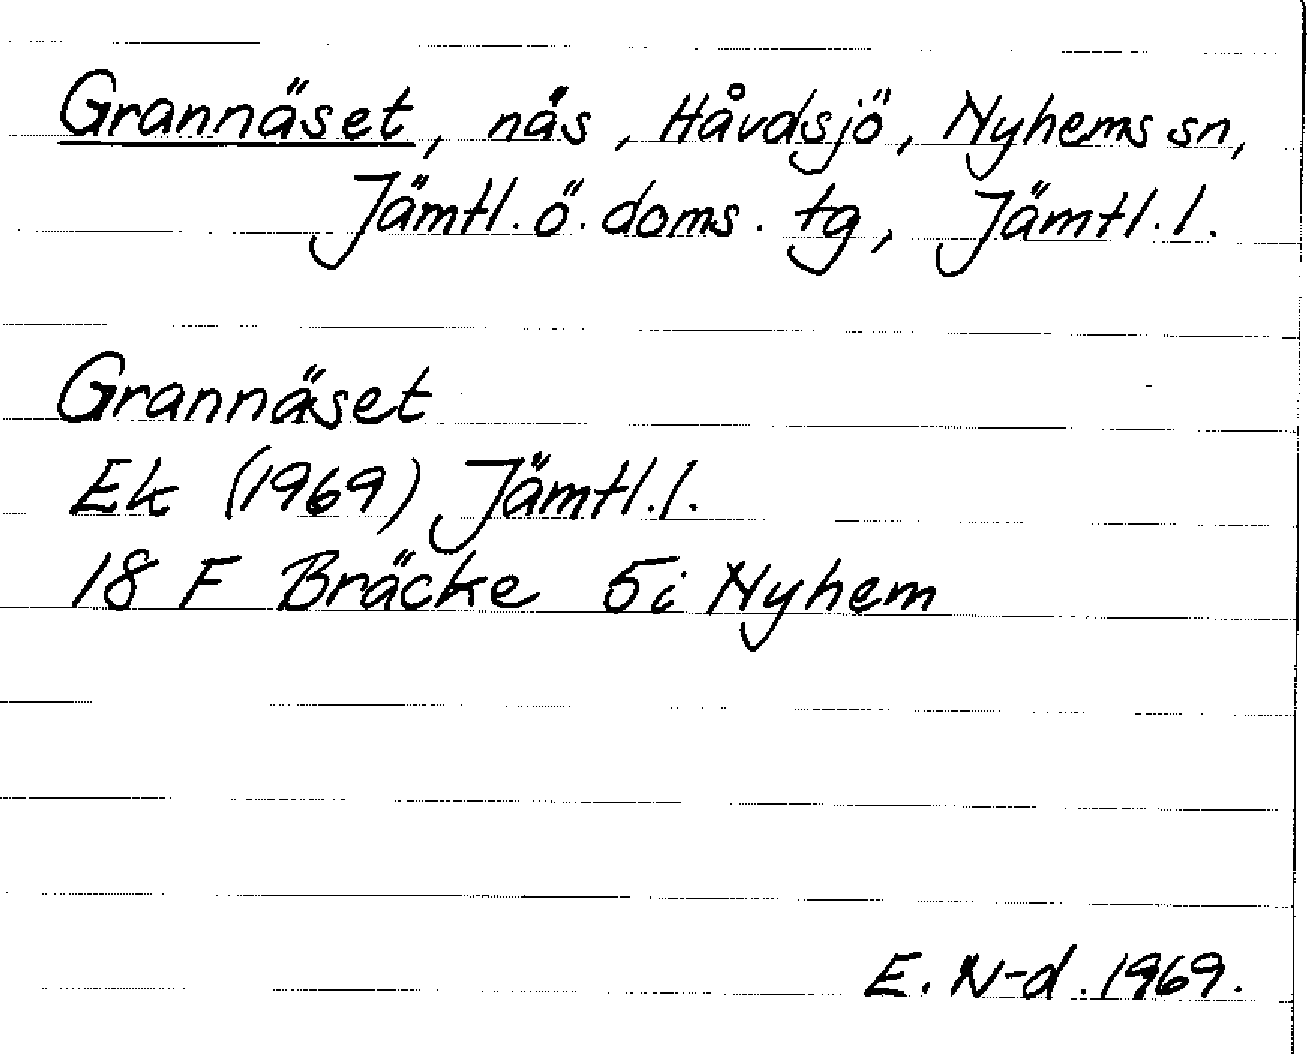 Grannäset, näs, Håvdsjö, Nyhems sn,
Jämtl. ö. doms. tg, Jämtl. l.
Grannäset
Ek (1969) Jämtl. l.
18 F Bräcke 5i Nyhem
E. N-d. 1969.